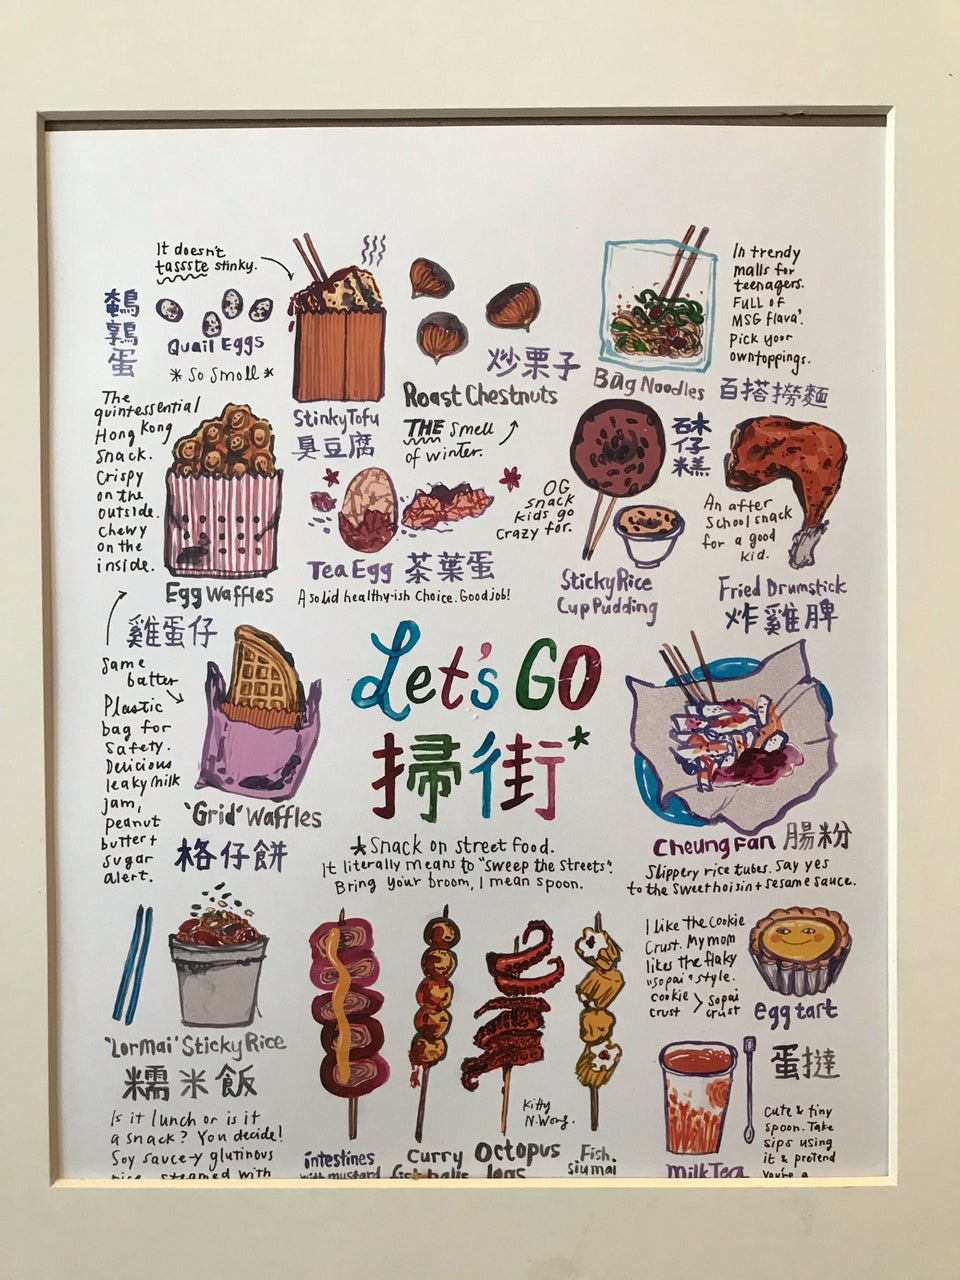 It doesn't
tassste stinky.
鵪
鶉
蛋
Quail Eggs
*So Small*
StinkyTofu
臭豆腐
炒栗子
Roast Chestnuts
THE Smell
of winter.
Bag Noodles 百搭撈麵
In trendy
malls for
teenagers.
FULL OF
MSG flava'.
Pick your
own toppings.
The
quintessential
Hong Kong
Snack.
Crispy
on the
outside.
Chewy
on the
inside.
Egg Waffles
雞蛋仔
Tea Egg 茶葉蛋
A solid healthy-ish Choice. Good job!
OG
Snack
kids go
Crazy for.
仔
糕
Sticky Rice
Cup Pudding
An after
School snack
for a good
kid.
Fried Drumstick
炸雞髀
Same
batter
Plastic
bag for
Safety.
Delicious
leaky milk
jam,
peanut
butter +
Sugar
alert.
'Grid' Waffles
格仔餅
Let's GO
掃街*
*Snack on street food.
It literally means to "Sweep the Streets".
Bring your broom, I mean spoon.
Cheung Fan 腸粉
Slippery rice tubes. Say yes
to the Sweet hoisin + sesame sauce.
'Lormai' Sticky Rice
糯米飯
Is it lunch or is it
a snack? You decide!
Soy sauce-y glutinous
rice steamed with
intestines
with mustard
Curry
fishballs
Octopus
legs
Kitty
N. Wong.
Fish
Siu mai
I like the Cookie
Crust. My mom
likes the flaky
"sopai" style.
Cookie > Sopai
crust crust
egg tart
蛋撻
Milk Tea
Cute & tiny
spoon. Take
sips using
it & pretend
you're a